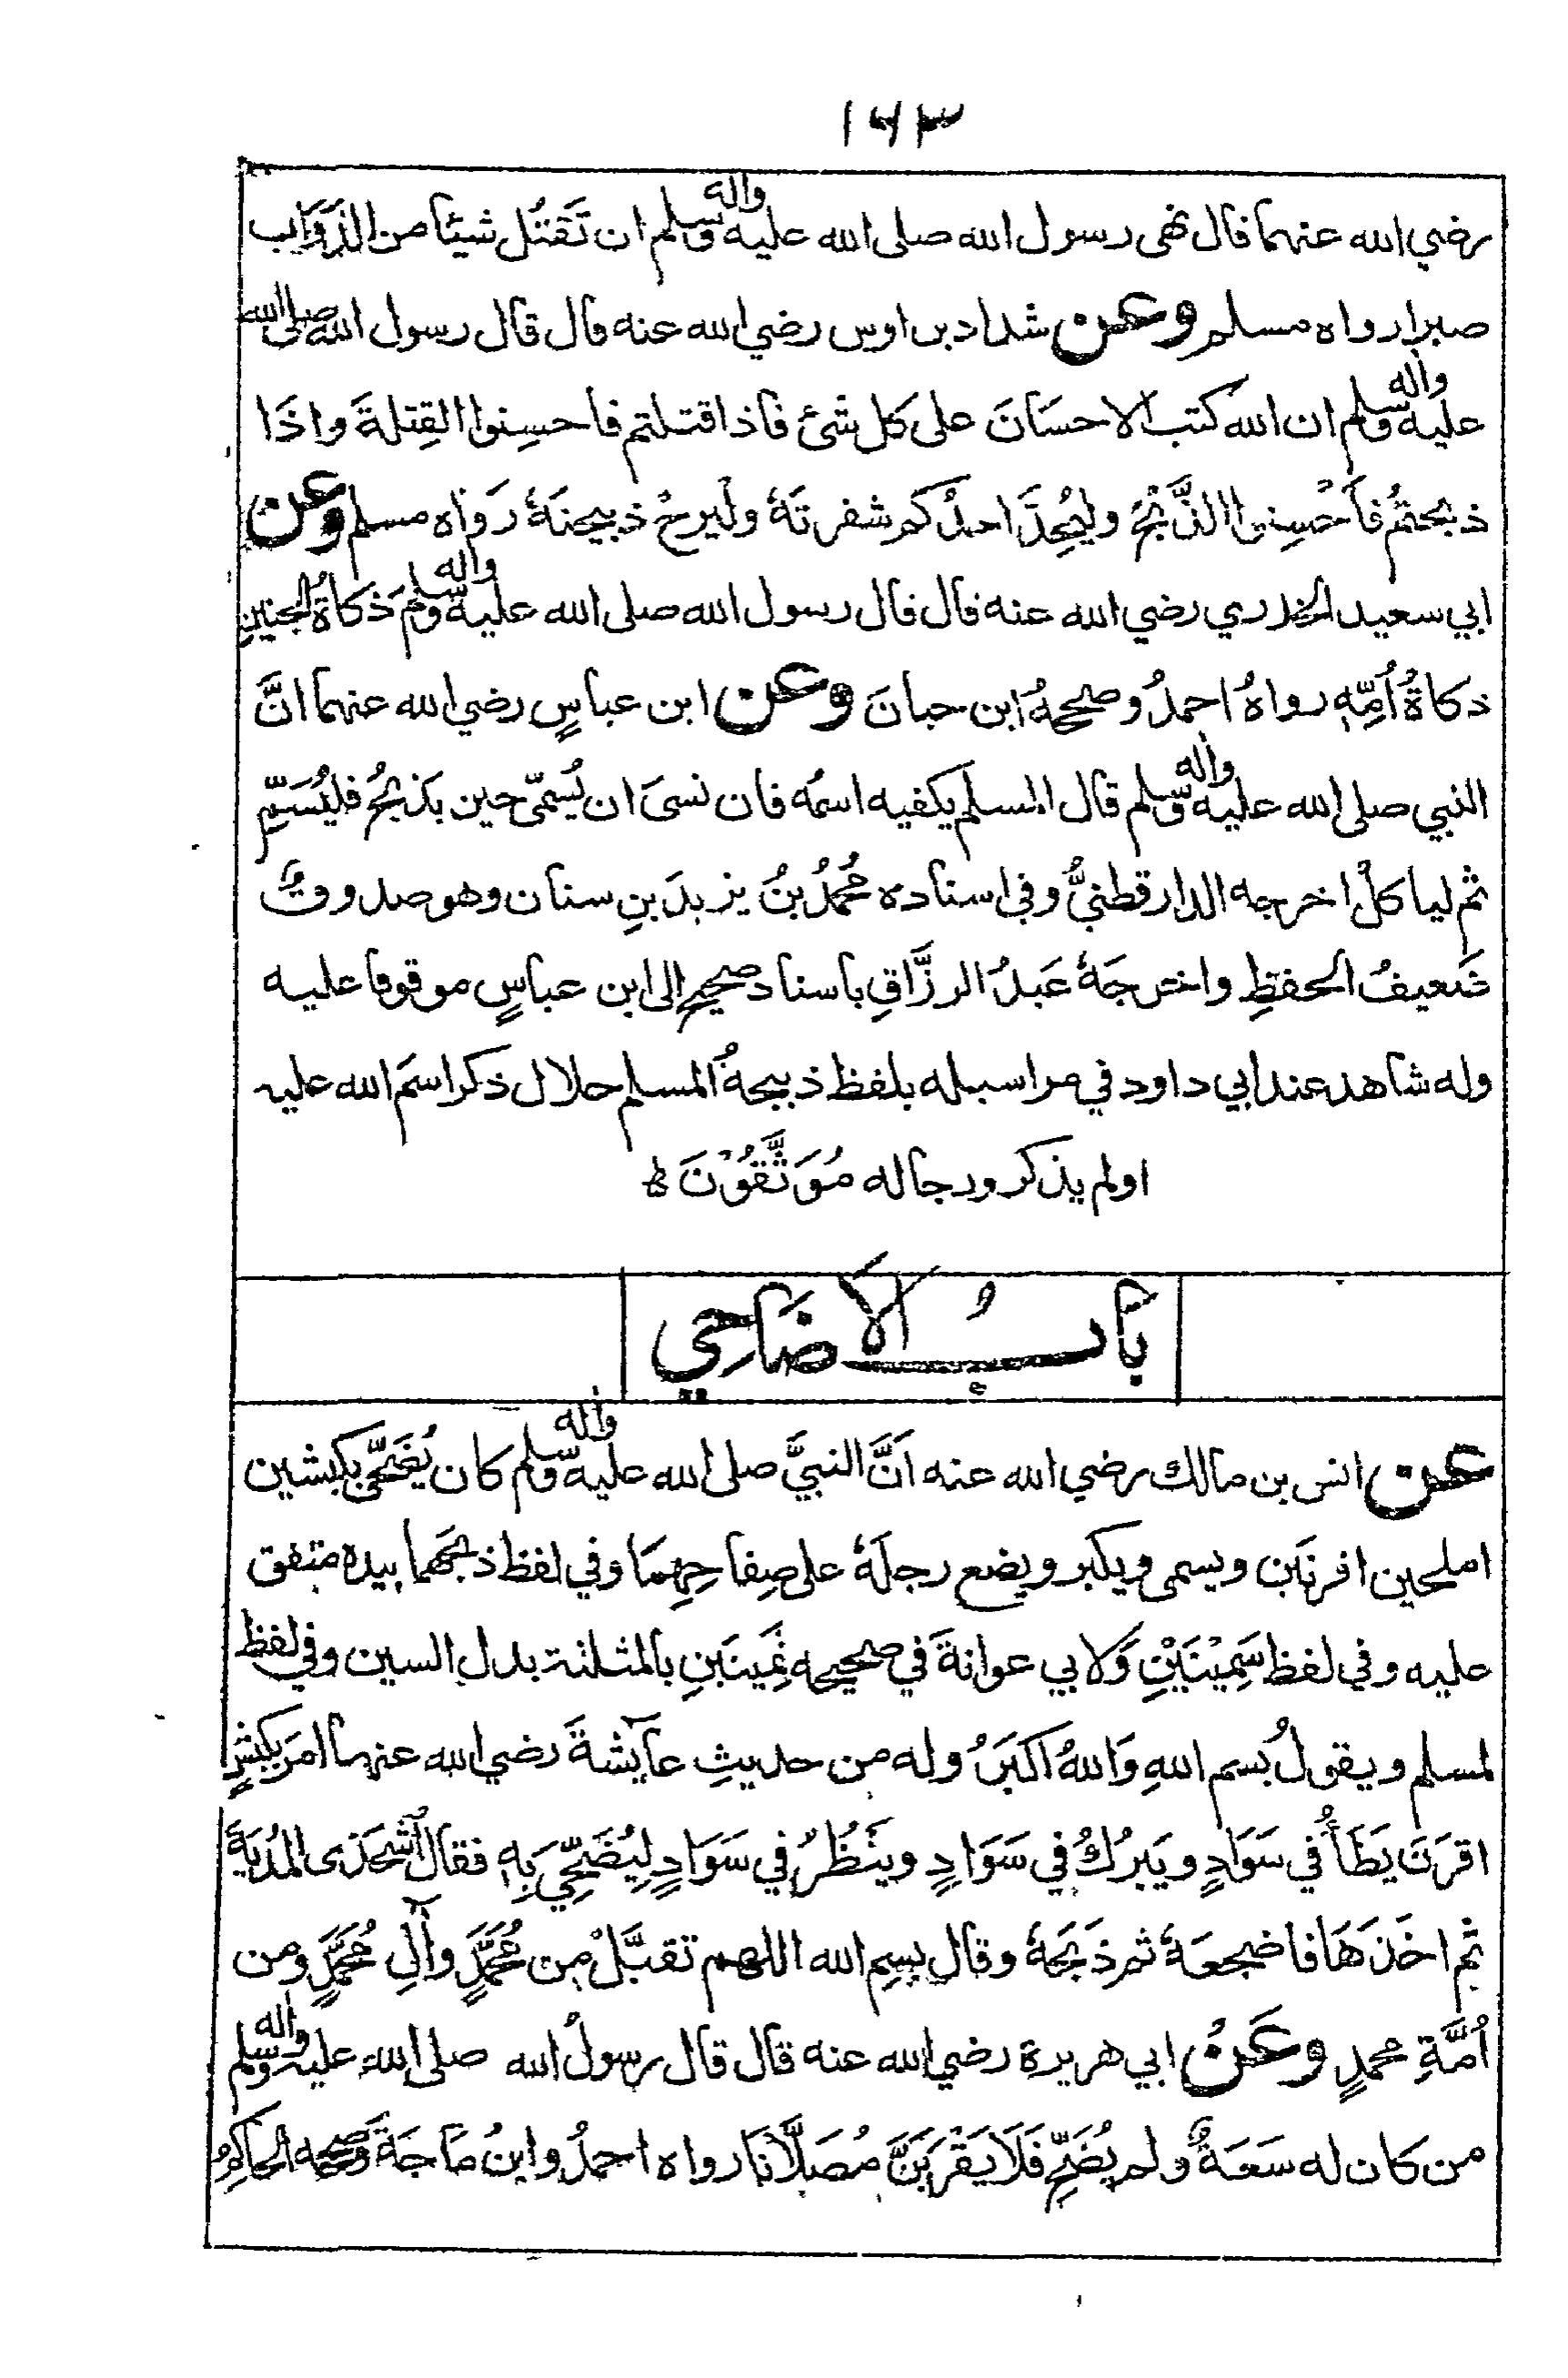 ١٦٣
رضي الله عنهما قال نهى رسول الله صلى الله عليه واله وسلم ان تَقتُل شيئا من الدَوَاب
صبرا رواه مسلم وعن شداد بن اوس رضي الله عنه قال قال رسول الله صلى الله
عليه واله وسلم ان الله كتب الاحسَانَ على كل شئ فاذا قتلتم فاحسِنوا القِتلةَ واذَا
ذبحتمُ فاَحْسِنوا الذَّبْحَ وليُحِدَّ احدُكم شفرتَهُ ولْيرحْ ذبيحتَهُ رَواه مسلم وعن
ابي سعيد الخدري رضي الله عنه قال قال رسول الله صلى الله عليه واله وسلمَ ذكاةُ الجنينِ
ذكاةُ اُمِّهِ رواهُ احمدُ وصححهُ ابن حبانَ وعن ابن عباسٍ رضي الله عنهما انَّ
النبي صلى الله عليه واله وسلم قال المسلم يكفيه اسمُه فان نسىَ ان يُسمّى حين يذبحُ فليُسَمِّ
ثم لياكلْ اخرجه الدارقطنيُّ وفي اسناده محُمدُ بنُ يزيدَ بنِ سنان وهو صدوقٌ
ضَعيفُ الحفظِ واخرجَهُ عَبدُ الرزَّاقِ باسناد صحيحٍ الى ابن عباسٍ موقوفا عليه
وله شاهد عند ابي داود في مراسيله بلفظ ذبيحةُ المسلم حلال ذكر اسمَ الله عليه
اولم يذكر ورجاله مُوَثَّقُوْنَ ط
بَابُ الاَضَاحِي
عن انس بن مالك رضي الله عنه اَنَّ النبيَّ صلى الله عليه واله وسلم كان يُضَحّى بكبشين
املحين اقرنَين ويسمى ويكبر ويضع رجلَهُ على صِفاحِهِمَا وفي لفظ ذبحَهما بيده متفق
عليه وفي لفظ سَمِيْنَيْنِ وَلابي عوانةَ في صحيحه ثمَِينَينِ بالمثلثة بدل السين وفي لفظ
لمسلم ويقولُ بسم اللهِ وَاللهُ اكبَرُ وله من حديثِ عآئشةَ رضي الله عنها امرَ بكبشٍ
اقرَنَ يَطَأُ في سَوَادٍ ويَبرُكُ في سَوَادٍ وينَظُرُ في سَوَادٍ لِيُضَحِّيَ بِهِ فقال اُشحَذى المُديَةَ
ثم اخَذَهَا فاضجعَهُ ثم ذَبحَهُ وقال بِسِم الله اللهم تقبَّلْ من محُمَّدٍ وآلِ محُمَّدٍ ومن
اُمَّةِ محمدٍ وعَنْ ابي هريرة رضي الله عنه قال قال رسولُ الله صلى الله عليه واله وسلم
من كان له سَعَةٌ ولم يُضَحِّ فَلَا يَقْرَبَنَّ مُصَلَّانَا رواه احمدُ وابنُ مَاجَةَ وصححه الحاكِمُ